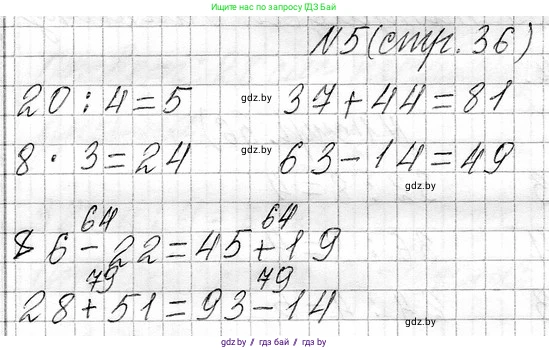 Ищите нас по запросу ГДЗ Бай
N5(стр. 36)
20 : 4 = 5 gdz.by 37 + 44 = 81
8 · 3 = 24 gdz.by 63 - 14 = 49
gdz.by
64 64
86 - 22 = 45 + 19
79 79
28 + 51 = 93 - 14
gdz.by
gdz.by / гдз бай / gdz.by